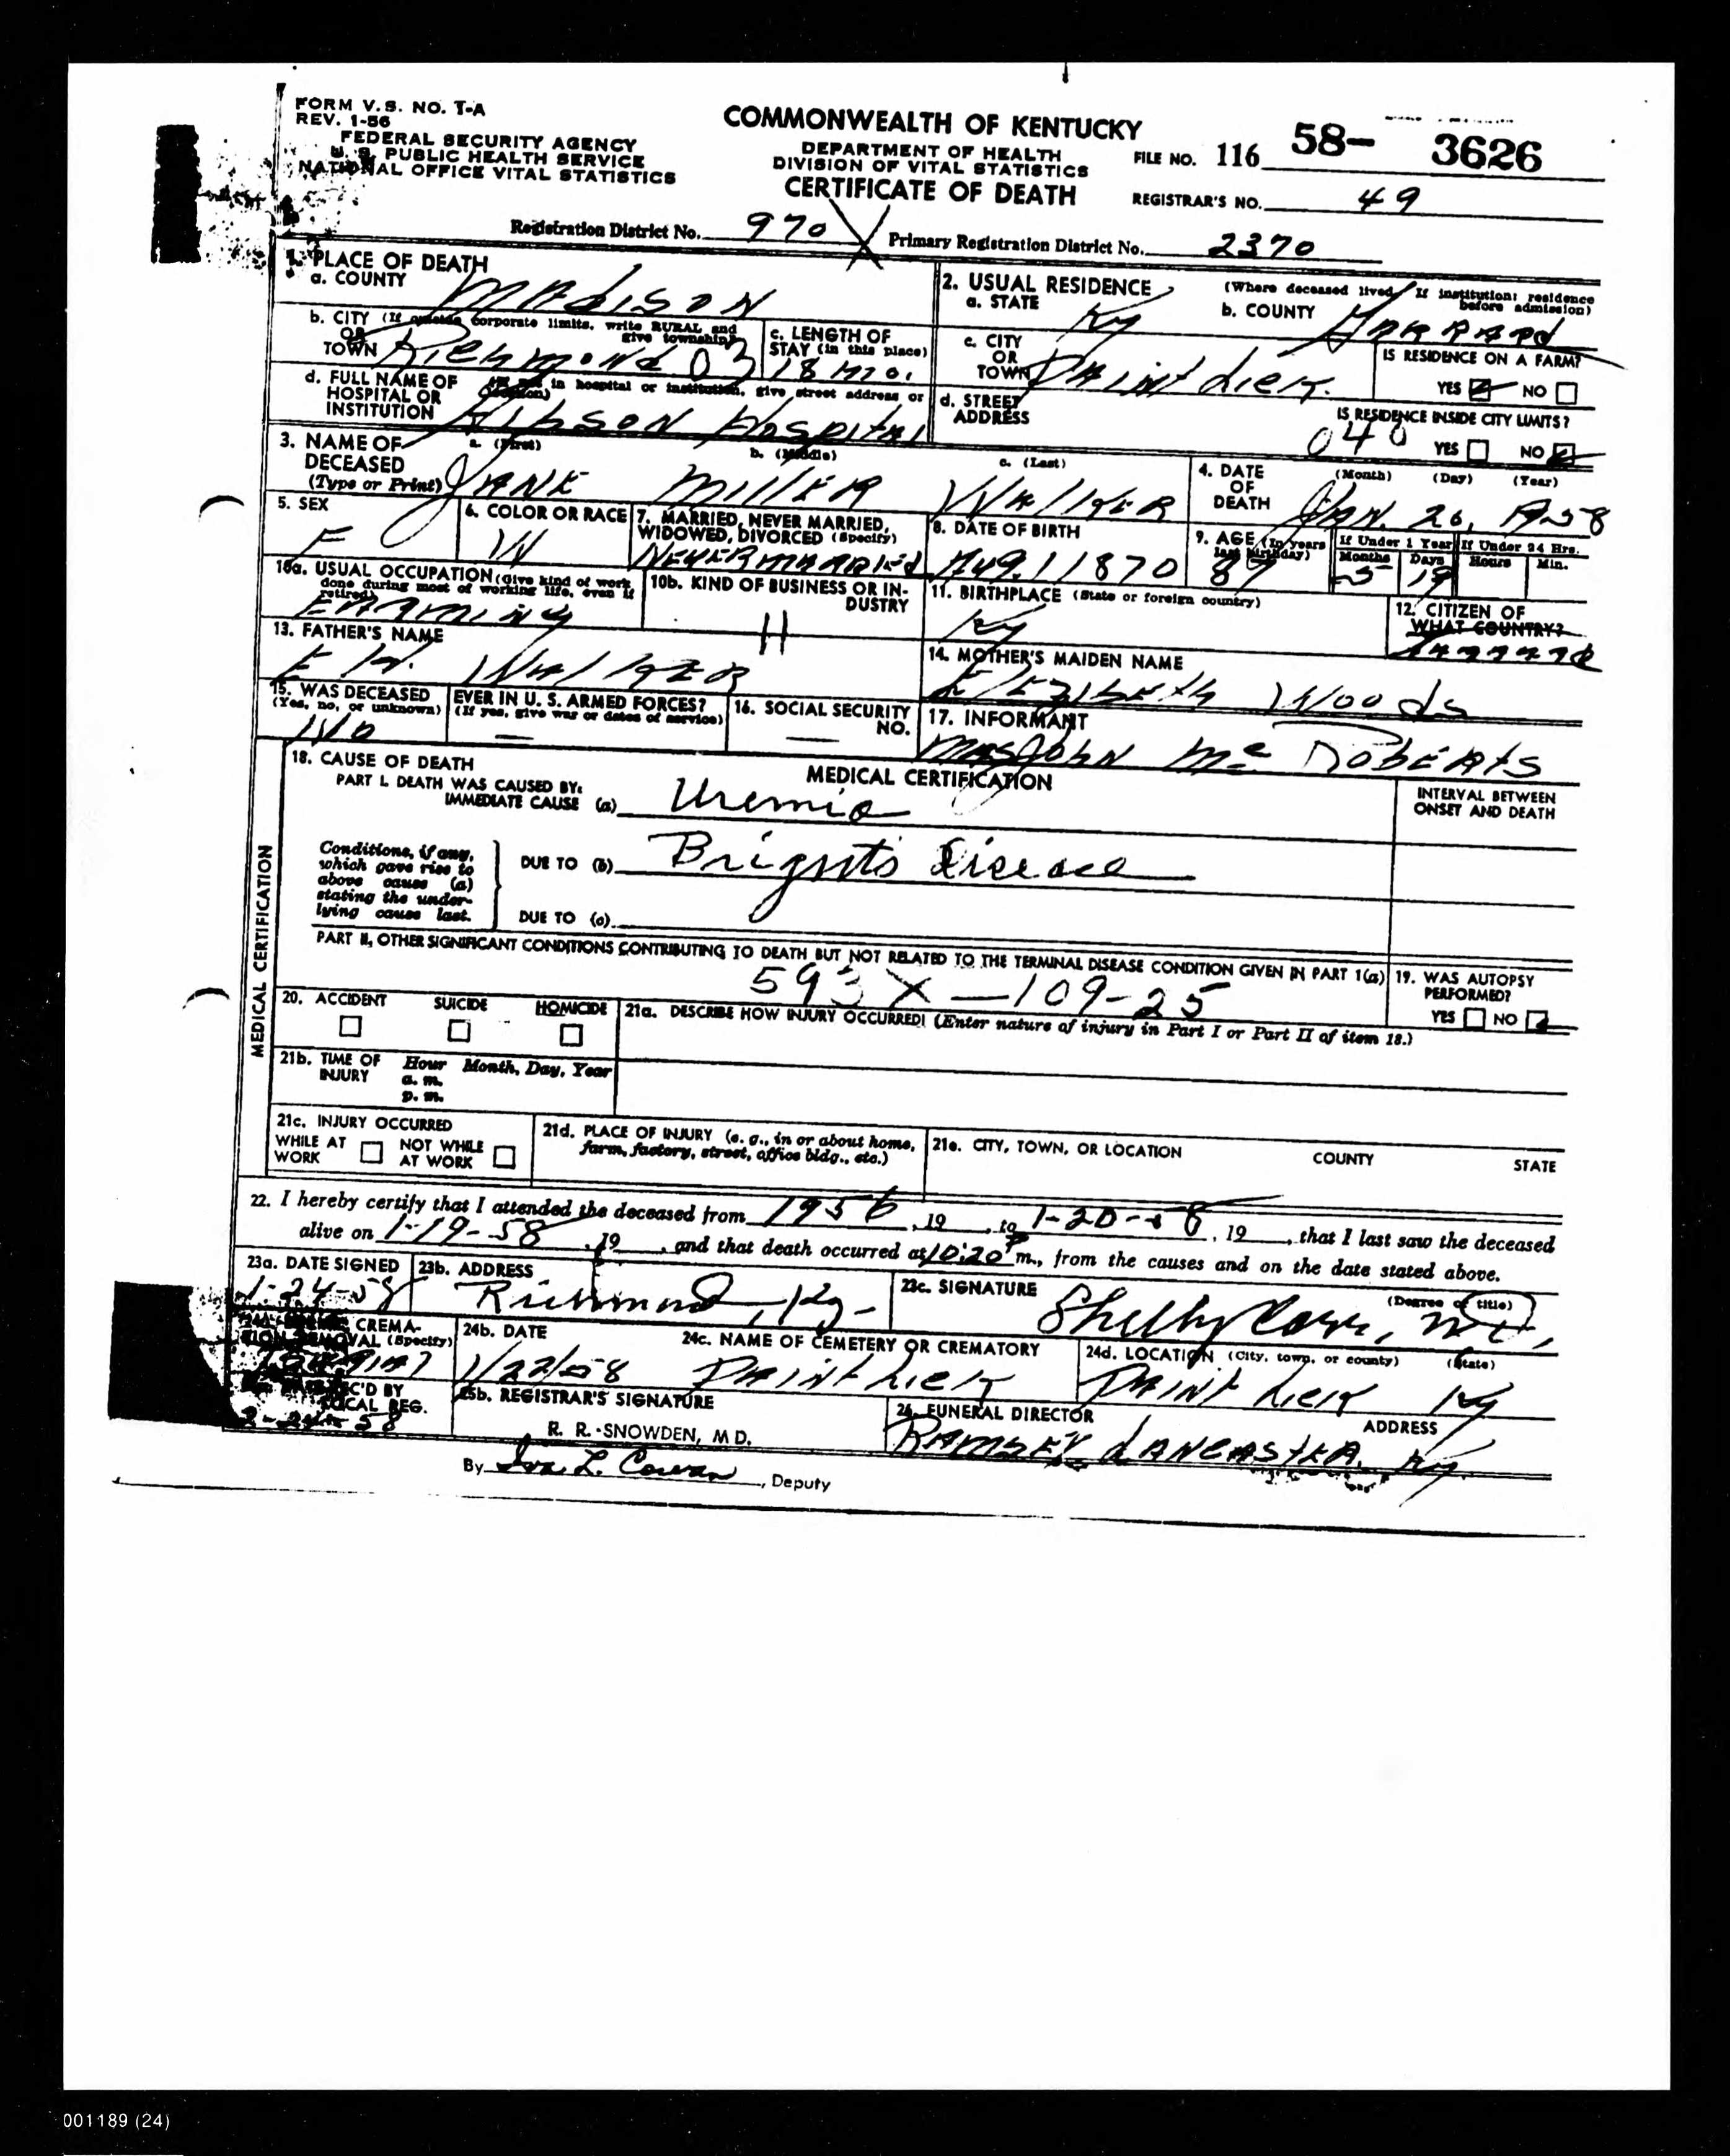 FORM V.S. NO. 1-A
REV. 1-56
FEDERAL SECURITY AGENCY
U. S. PUBLIC HEALTH SERVICE
NATIONAL OFFICE VITAL STATISTICS
COMMONWEALTH OF KENTUCKY
DEPARTMENT OF HEALTH
DIVISION OF VITAL STATISTICS
CERTIFICATE OF DEATH
FILE NO. 116 58- 3626
REGISTRAR'S NO. 49
Registration District No. 970 X Primary Registration District No. 2370
1. PLACE OF DEATH
a. COUNTY Madison
b. CITY (If outside corporate limits, write RURAL and give township)
OR TOWN Richmond 03
c. LENGTH OF STAY (in this place) 18 mo.
d. FULL NAME OF HOSPITAL OR INSTITUTION (If not in hospital or institution, give street address or location)
Gibson Hospital
2. USUAL RESIDENCE (Where deceased lived. If institution: residence before admission)
a. STATE Ky
b. COUNTY Garrard
c. CITY OR TOWN Paint Lick.
IS RESIDENCE ON A FARM?
YES NO
d. STREET ADDRESS
040
IS RESIDENCE INSIDE CITY LIMITS?
YES NO
3. NAME OF DECEASED (Type or Print)
a. (First) b. (Middle) c. (Last)
JANE MILLER WALKER
4. DATE OF DEATH (Month) (Day) (Year)
JAN. 20, 1958
5. SEX F
6. COLOR OR RACE W
7. MARRIED, NEVER MARRIED, WIDOWED, DIVORCED (Specify)
NEVER MARRIED
8. DATE OF BIRTH Aug. 1 1870
9. AGE (In years last birthday) 87
If Under 1 Year Months 5 Days 19
If Under 24 Hrs. Hours Min.
10a. USUAL OCCUPATION (Give kind of work done during most of working life, even if retired)
FARMING
10b. KIND OF BUSINESS OR INDUSTRY
11. BIRTHPLACE (State or foreign country)
Ky
12. CITIZEN OF WHAT COUNTRY?
13. FATHER'S NAME
E W. WALKER
14. MOTHER'S MAIDEN NAME
Elezibeth Woods
15. WAS DECEASED EVER IN U. S. ARMED FORCES?
(Yes, no, or unknown) (If yes, give war or dates of service)
No —
16. SOCIAL SECURITY NO. —
17. INFORMANT
Mrs John Mc Roberts
MEDICAL CERTIFICATION
18. CAUSE OF DEATH
MEDICAL CERTIFICATION
INTERVAL BETWEEN ONSET AND DEATH
PART I. DEATH WAS CAUSED BY:
IMMEDIATE CAUSE (a) Uremia
Conditions, if any, which gave rise to above cause (a) stating the underlying cause last.
DUE TO (b) Brights Disease
DUE TO (c)
PART II, OTHER SIGNIFICANT CONDITIONS CONTRIBUTING TO DEATH BUT NOT RELATED TO THE TERMINAL DISEASE CONDITION GIVEN IN PART 1(a)
593 X — 109-25
19. WAS AUTOPSY PERFORMED?
YES NO
20. ACCIDENT SUICIDE HOMICIDE
21a. DESCRIBE HOW INJURY OCCURRED! (Enter nature of injury in Part I or Part II of item 18.)
21b. TIME OF INJURY Hour a. m. p. m. Month, Day, Year
21c. INJURY OCCURRED
WHILE AT WORK NOT WHILE AT WORK
21d. PLACE OF INJURY (e. g., in or about home, farm, factory, street, office bldg., etc.)
21e. CITY, TOWN, OR LOCATION COUNTY STATE
22. I hereby certify that I attended the deceased from 1956, 19 , to 1-20-58, 19 , that I last saw the deceased
alive on 1-19-58, 19 , and that death occurred at 10:20 P m., from the causes and on the date stated above.
23a. DATE SIGNED 1-24-58
23b. ADDRESS Richmond, Ky-
23c. SIGNATURE (Degree or title)
Shelby Carr, M.D.,
CREMATION REMOVAL (Specify)
24b. DATE 1/22/58
24c. NAME OF CEMETERY OR CREMATORY
Paint Lick
24d. LOCATION (City, town, or county) (State)
Paint Lick Ky
REC'D BY LOCAL REG.
25b. REGISTRAR'S SIGNATURE
R. R. SNOWDEN, M D.
By Iva L. Cowan, Deputy
26. FUNERAL DIRECTOR ADDRESS
RAMSEY LANCASTER, Ky.
001189 (24)